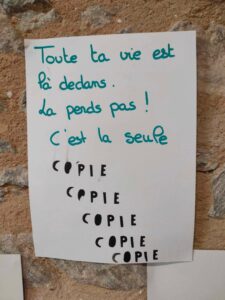 Toute ta vie est
là dedans.
La perds pas !
C'est la seule
COPIE
COPIE
COPIE
COPIE
COPIE